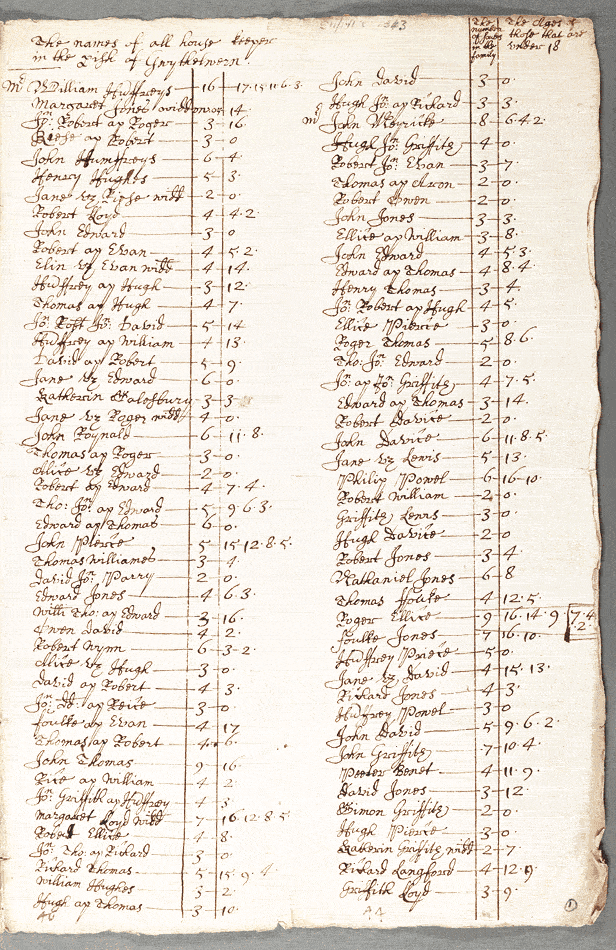 The names of all house keeper
in the Pish of Gwythelwern
Mr William Humffreys 16 17.15.11.6.3
Margaret Jones widdow 14
Jon Robert ap Roger 3 16
Reese ap Robert 3 0
John Humffreys 6 4
Henry Hughes 5 3
Jane vz Rice widd 2 0
Robert Loyd 4 4.2
John Edward 3 0
Robert ap Evan 4 5 2
Elin vz Evan widd 4 14
Humffrey ap Hugh 3 12
Thomas ap Hugh 4 7
Jon Robt Jon David 5 14
Humffrey ap William 4 13
David ap Robert 5 9
Jane vz Edward 6 0
Katherin Salesbury 3 3
Jane vz Roger widd 4 0
John Roynald 6 11.8
Thomas ap Roger 3 0
Alice vz Edward 2 0
Robert ap Edward 4 7.4
Tho: Jon ap Edward 5 9.6.3
Edward ap Thomas 6 0
John Pierce 5 15 12.8.5
Thomas Williames 3 4
David Jon Parry 2 0
Edward Jones 4 6.3
Willi Tho: ap Edward 3 16
Owen David 4 2
Robert Wynn 6 3.2
Alice vz Hugh 3 0
David ap Robert 4 3
Jon Dd: ap Reice 3 0
Foulke ap Evan 4 17
Thomas ap Robert 4 6
John Thomas 9 16
Rice ap William 4 2
Jon Griffith ap Humffrey 4 3
Margaret Loyd widd 7 16.12.8.5
Robert Ellice 4 8
Jon Tho: ap Rickard 3 0
Rickard Thomas 5 15.9.4
William Hughes 3 2
Hugh ap Thomas 3 10
46
The
number
of
in the
family
The Ages of
those that are
under 18
John David 3 0
Hugh Jon ap Rickard 3 3
Mr John Meyricke 8 6.4.2
Hugh Jon Griffith 4 0
Robert Jon Evan 3 7
Thomas ap Aron 2 0
Robert Owen 2 0
John Jones 3 3
Ellice ap William 3 8
John Edward 4 5.3
Edward ap Thomas 4 8.4
Henry Thomas 3 4
Jon Robert ap Hugh 4 5
Ellice Pierce 3 0
Roger Thomas 5 8.6
Tho: Jon Edward 2 0
Jon ap Jon Griffith 4 7.5
Edward ap Thomas 3 14
Robert Davice 2 0
John Davice 6 11.8.5
Jane vz Lewis 5 13
Philip Powel 6 16.10
Robert William 2 0
Griffith Lewis 3 0
Hugh Davice 2 0
Robert Jones 3 4
Nathaniel Jones 6 8
Thomas Foulke 4 12.5
Roger Ellice 9 16.14.9 7.4.2
Foulke Jones 7 16.10
Humffrey Preece 5 0
Jane vz David 4 15.13
Rickard Jones 4 3
Humffrey Powel 3 0
John David 5 9.6.2
John Griffith 7 10.4
Peeter Benet 4 11.9
David Jones 3 12
Simon Griffith 2 0
Hugh Pierce 3 0
Katherin Griffith widd 2 7
Rickard Langford 4 12.9
Griffith Loyd 3 9
44
1